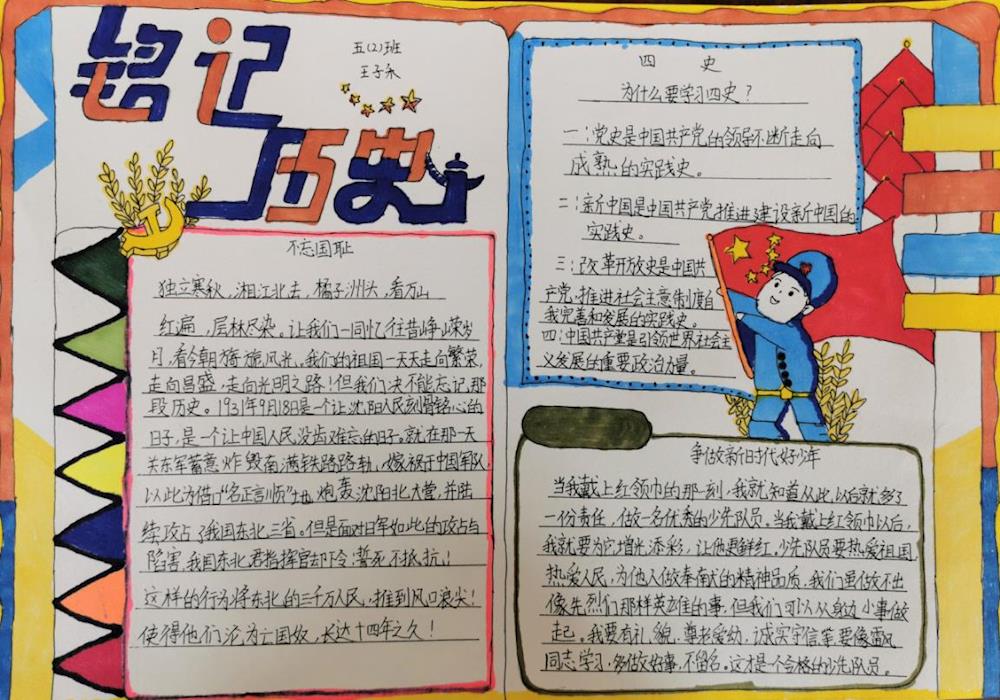 铭记历史
五(2)班
王子永
不忘国耻
独立寒秋,湘江北去,橘子洲头,看万山
红遍,层林尽染。让我们一同忆往昔峥嵘岁
月,看今朝旖旎风光。我们的祖国一天天走向繁荣,
走向昌盛,走向光明之路!但我们决不能忘记,那
段历史。1931年9月18日是一个让沈阳人民刻骨铭心的
日子,是一个让中国人民没齿难忘的日子。就在那一天
关东军蓄意炸毁南满铁路路轨,嫁祸于中国军队
以此为借口“名正言顺”地炮轰沈阳北大营,并陆
续攻占了我国东北三省。但是面对日军如此的攻占与
陷害,我国东北君指挥官却下令:誓死不抵抗!
这样的行为将东北的三千万人民,推到风口浪尖!
使得他们沦为亡国奴,长达十四年之久!
四 史
为什么要学习四史?
一:党史是中国共产党的领导不断走向
成熟的实践史。
二:新中国是中国共产党推进建设新中国的
实践史。
三:改革开放史是中国共
产党,推进社会主意制度自
我完善和发展的实践史。
四:中国共产党是引领世界社会主
义发展的重要政治力量。
争做新时代好少年
当我戴上红领巾的那一刻,我就知道从此以后就多了
一份责任,做一名优秀的少先队员。当我戴上红领巾以后,
我就要为它增光添彩,让他更鲜红。少先队员要热爱祖国
热爱人民,为他人做奉献的精神品质。我们更做不出
像先烈们那样英雄的事,但我们可以从身边小事做
起。我要有礼貌,尊老爱幼,诚实守信等,要像雷风
同志学习,多做好事,不留名。这才是一个合格的少先队员。